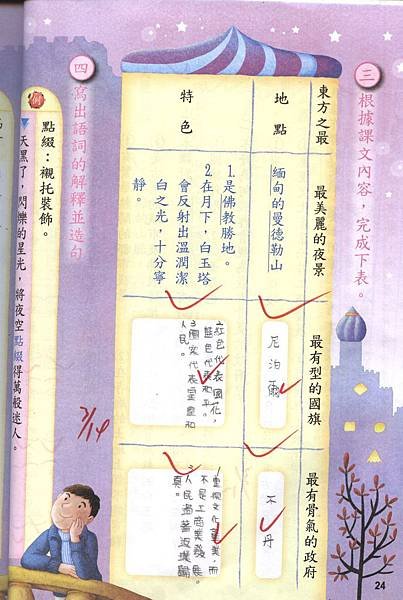 三 根據課文內容，完成下表。
東方之最
最美麗的夜景
最有型的國旗
最有骨氣的政府
地點
緬甸的曼德勒山
尼泊爾
不丹
特色
1.是佛教勝地。
2.在月下，白玉塔
會反射出溫潤潔
白之光，十分寧
靜。
紅色代表國花，
藍色代表和平。
人民。
不是工商業發展。
四 寫出語詞的解釋並造句
例
點綴：襯托裝飾。
▼天黑了，閃爍的星光，將夜空點綴得萬般迷人。
24